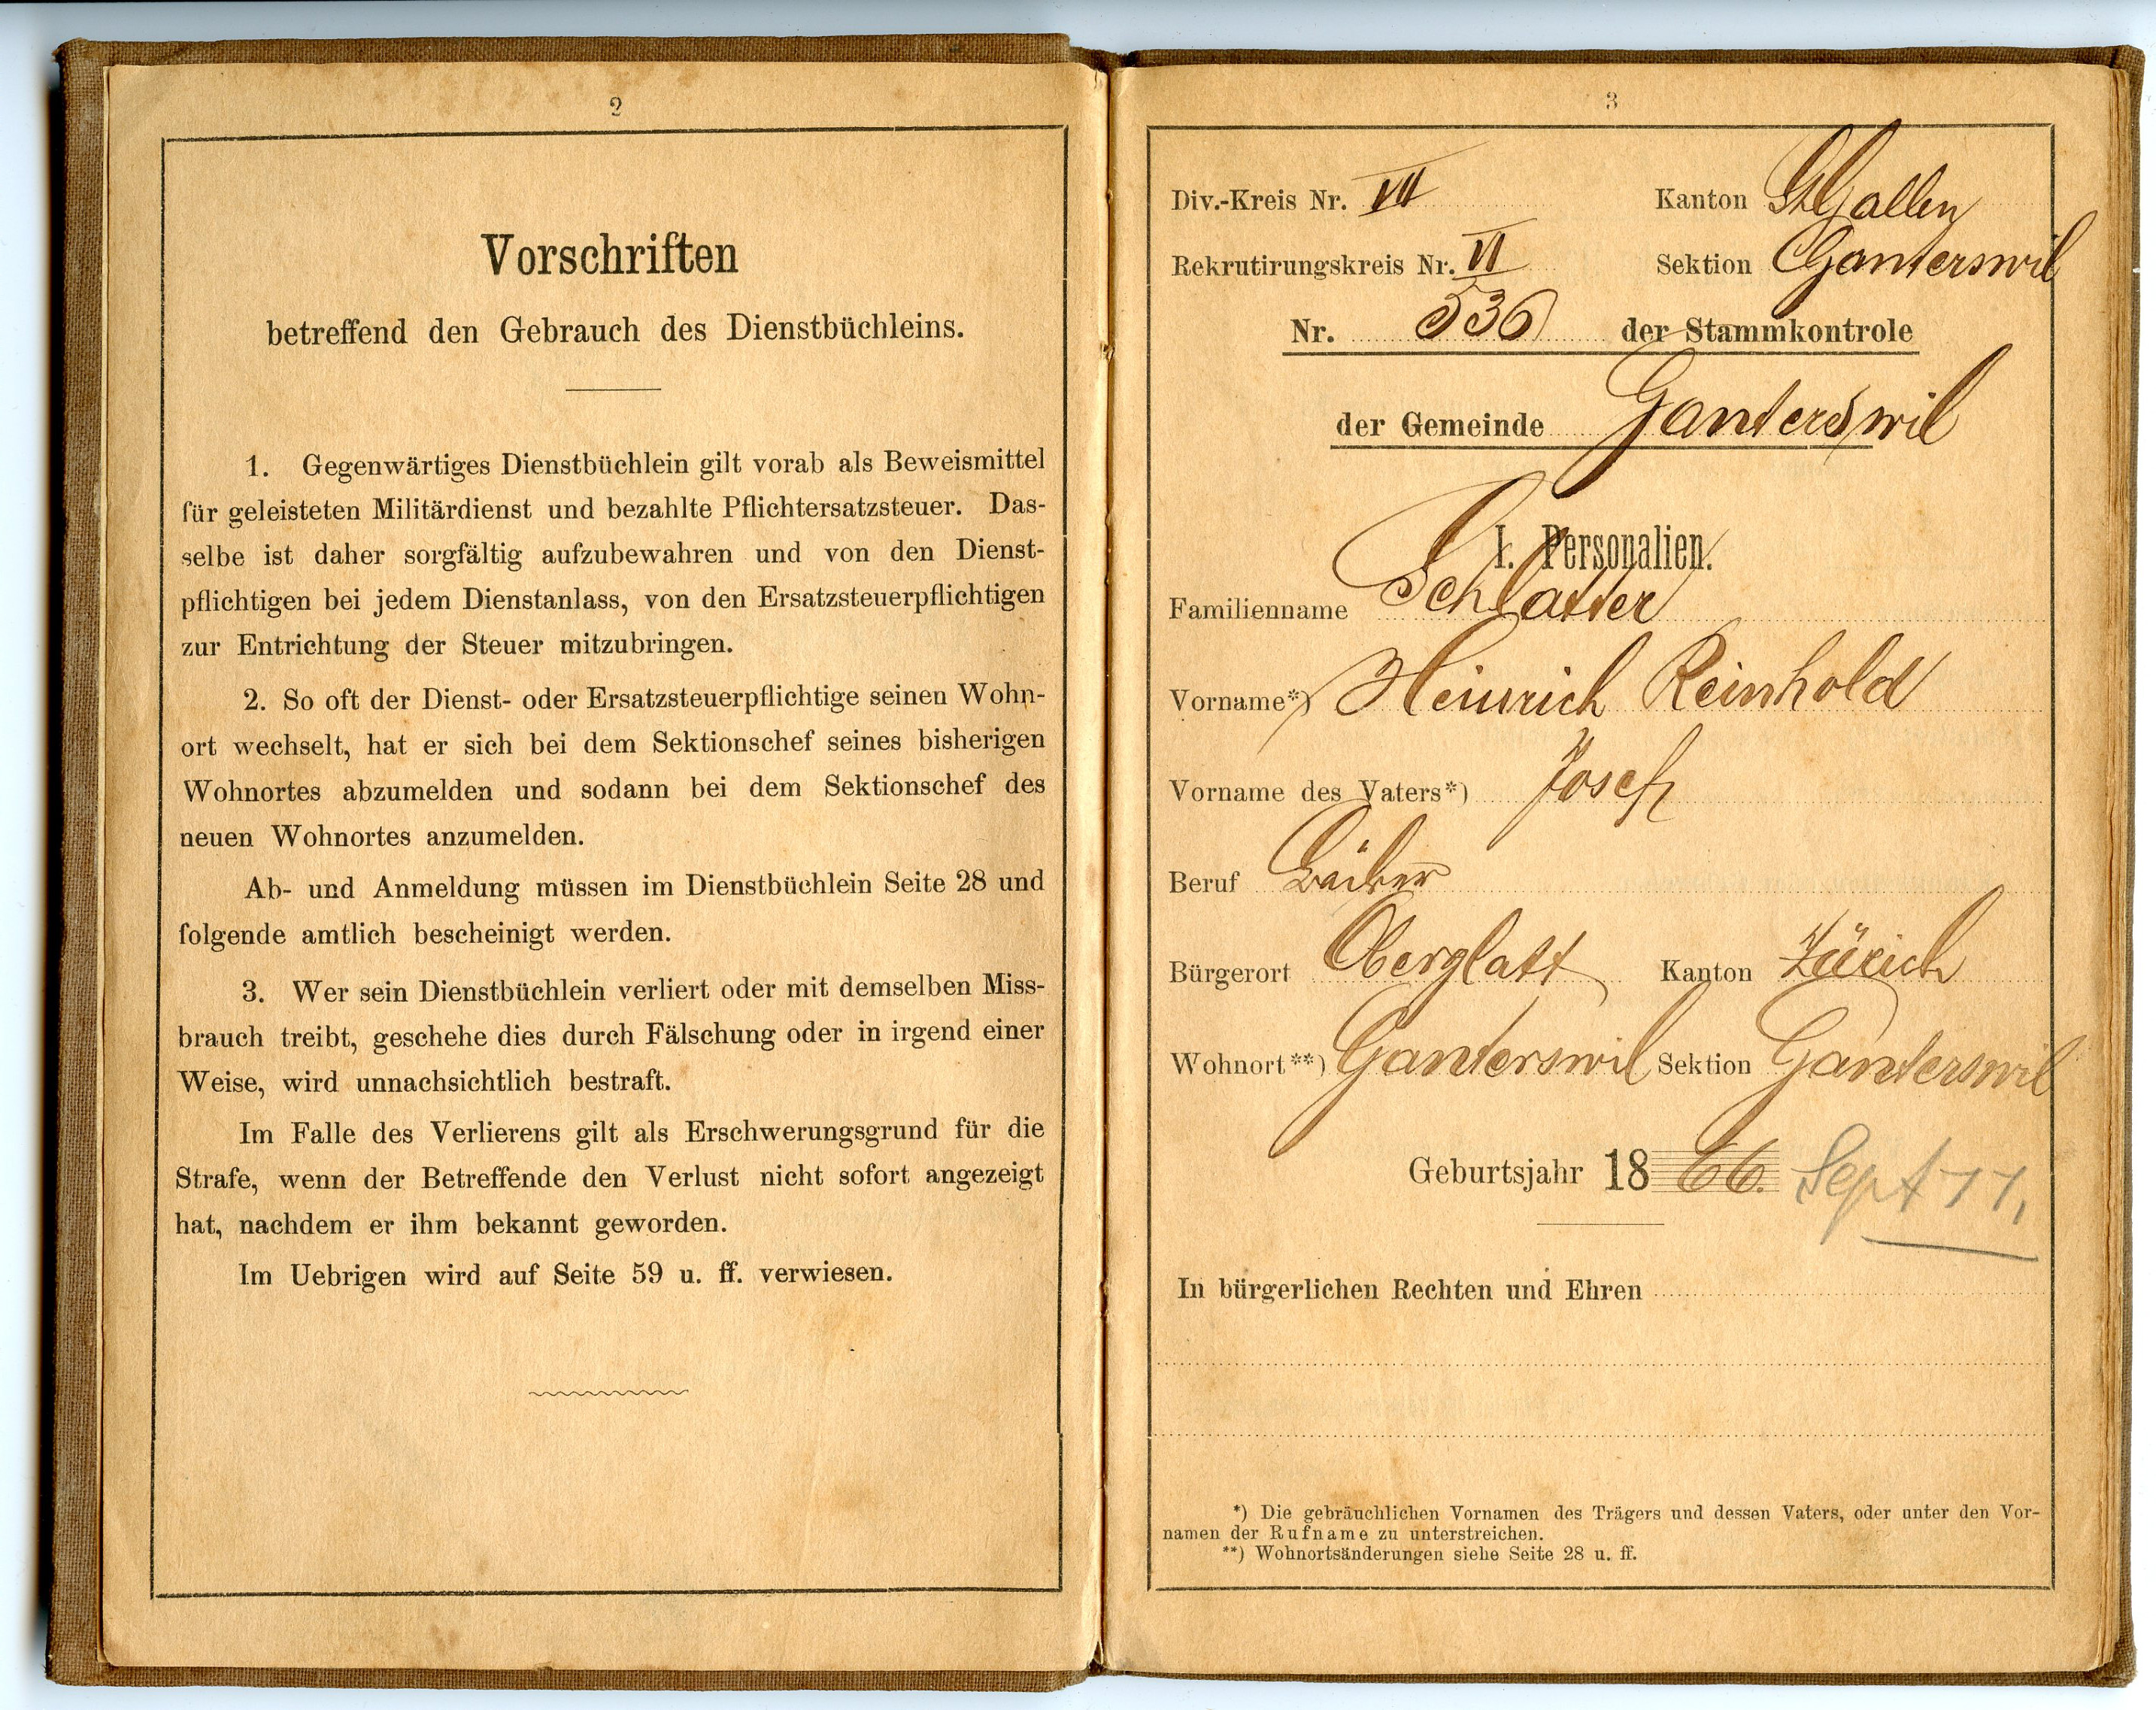 2
Vorschriften
betreffend den Gebrauch des Dienstbüchleins.
1. Gegenwärtiges Dienstbüchlein gilt vorab als Beweismittel
für geleisteten Militärdienst und bezahlte Pflichtersatzsteuer. Das-
selbe ist daher sorgfältig aufzubewahren und von den Dienst-
pflichtigen bei jedem Dienstanlass, von den Ersatzsteuerpflichtigen
zur Entrichtung der Steuer mitzubringen.
2. So oft der Dienst- oder Ersatzsteuerpflichtige seinen Wohn-
ort wechselt, hat er sich bei dem Sektionschef seines bisherigen
Wohnortes abzumelden und sodann bei dem Sektionschef des
neuen Wohnortes anzumelden.
Ab- und Anmeldung müssen im Dienstbüchlein Seite 28 und
folgende amtlich bescheinigt werden.
3. Wer sein Dienstbüchlein verliert oder mit demselben Miss-
brauch treibt, geschehe dies durch Fälschung oder in irgend einer
Weise, wird unnachsichtlich bestraft.
Im Falle des Verlierens gilt als Erschwerungsgrund für die
Strafe, wenn der Betreffende den Verlust nicht sofort angezeigt
hat, nachdem er ihm bekannt geworden.
Im Uebrigen wird auf Seite 59 u. ff. verwiesen.
3
Div.-Kreis Nr. VII Kanton St.Gallen
Rekrutirungskreis Nr. VI Sektion Ganterswil
Nr. 536 der Stammkontrole
der Gemeinde Ganterswil
I. Personalien.
Familienname Schlatter
Vorname*) Heinrich Reinhold
Vorname des Vaters*) Josef
Beruf Bäcker
Bürgerort Oberglatt Kanton Zürich
Wohnort**) Ganterswil Sektion Ganterswil
Geburtsjahr 1866. Sept 11,
In bürgerlichen Rechten und Ehren
*) Die gebräuchlichen Vornamen des Trägers und dessen Vaters, oder unter den Vor-
namen der Rufname zu unterstreichen.
**) Wohnortsänderungen siehe Seite 28 u. ff.